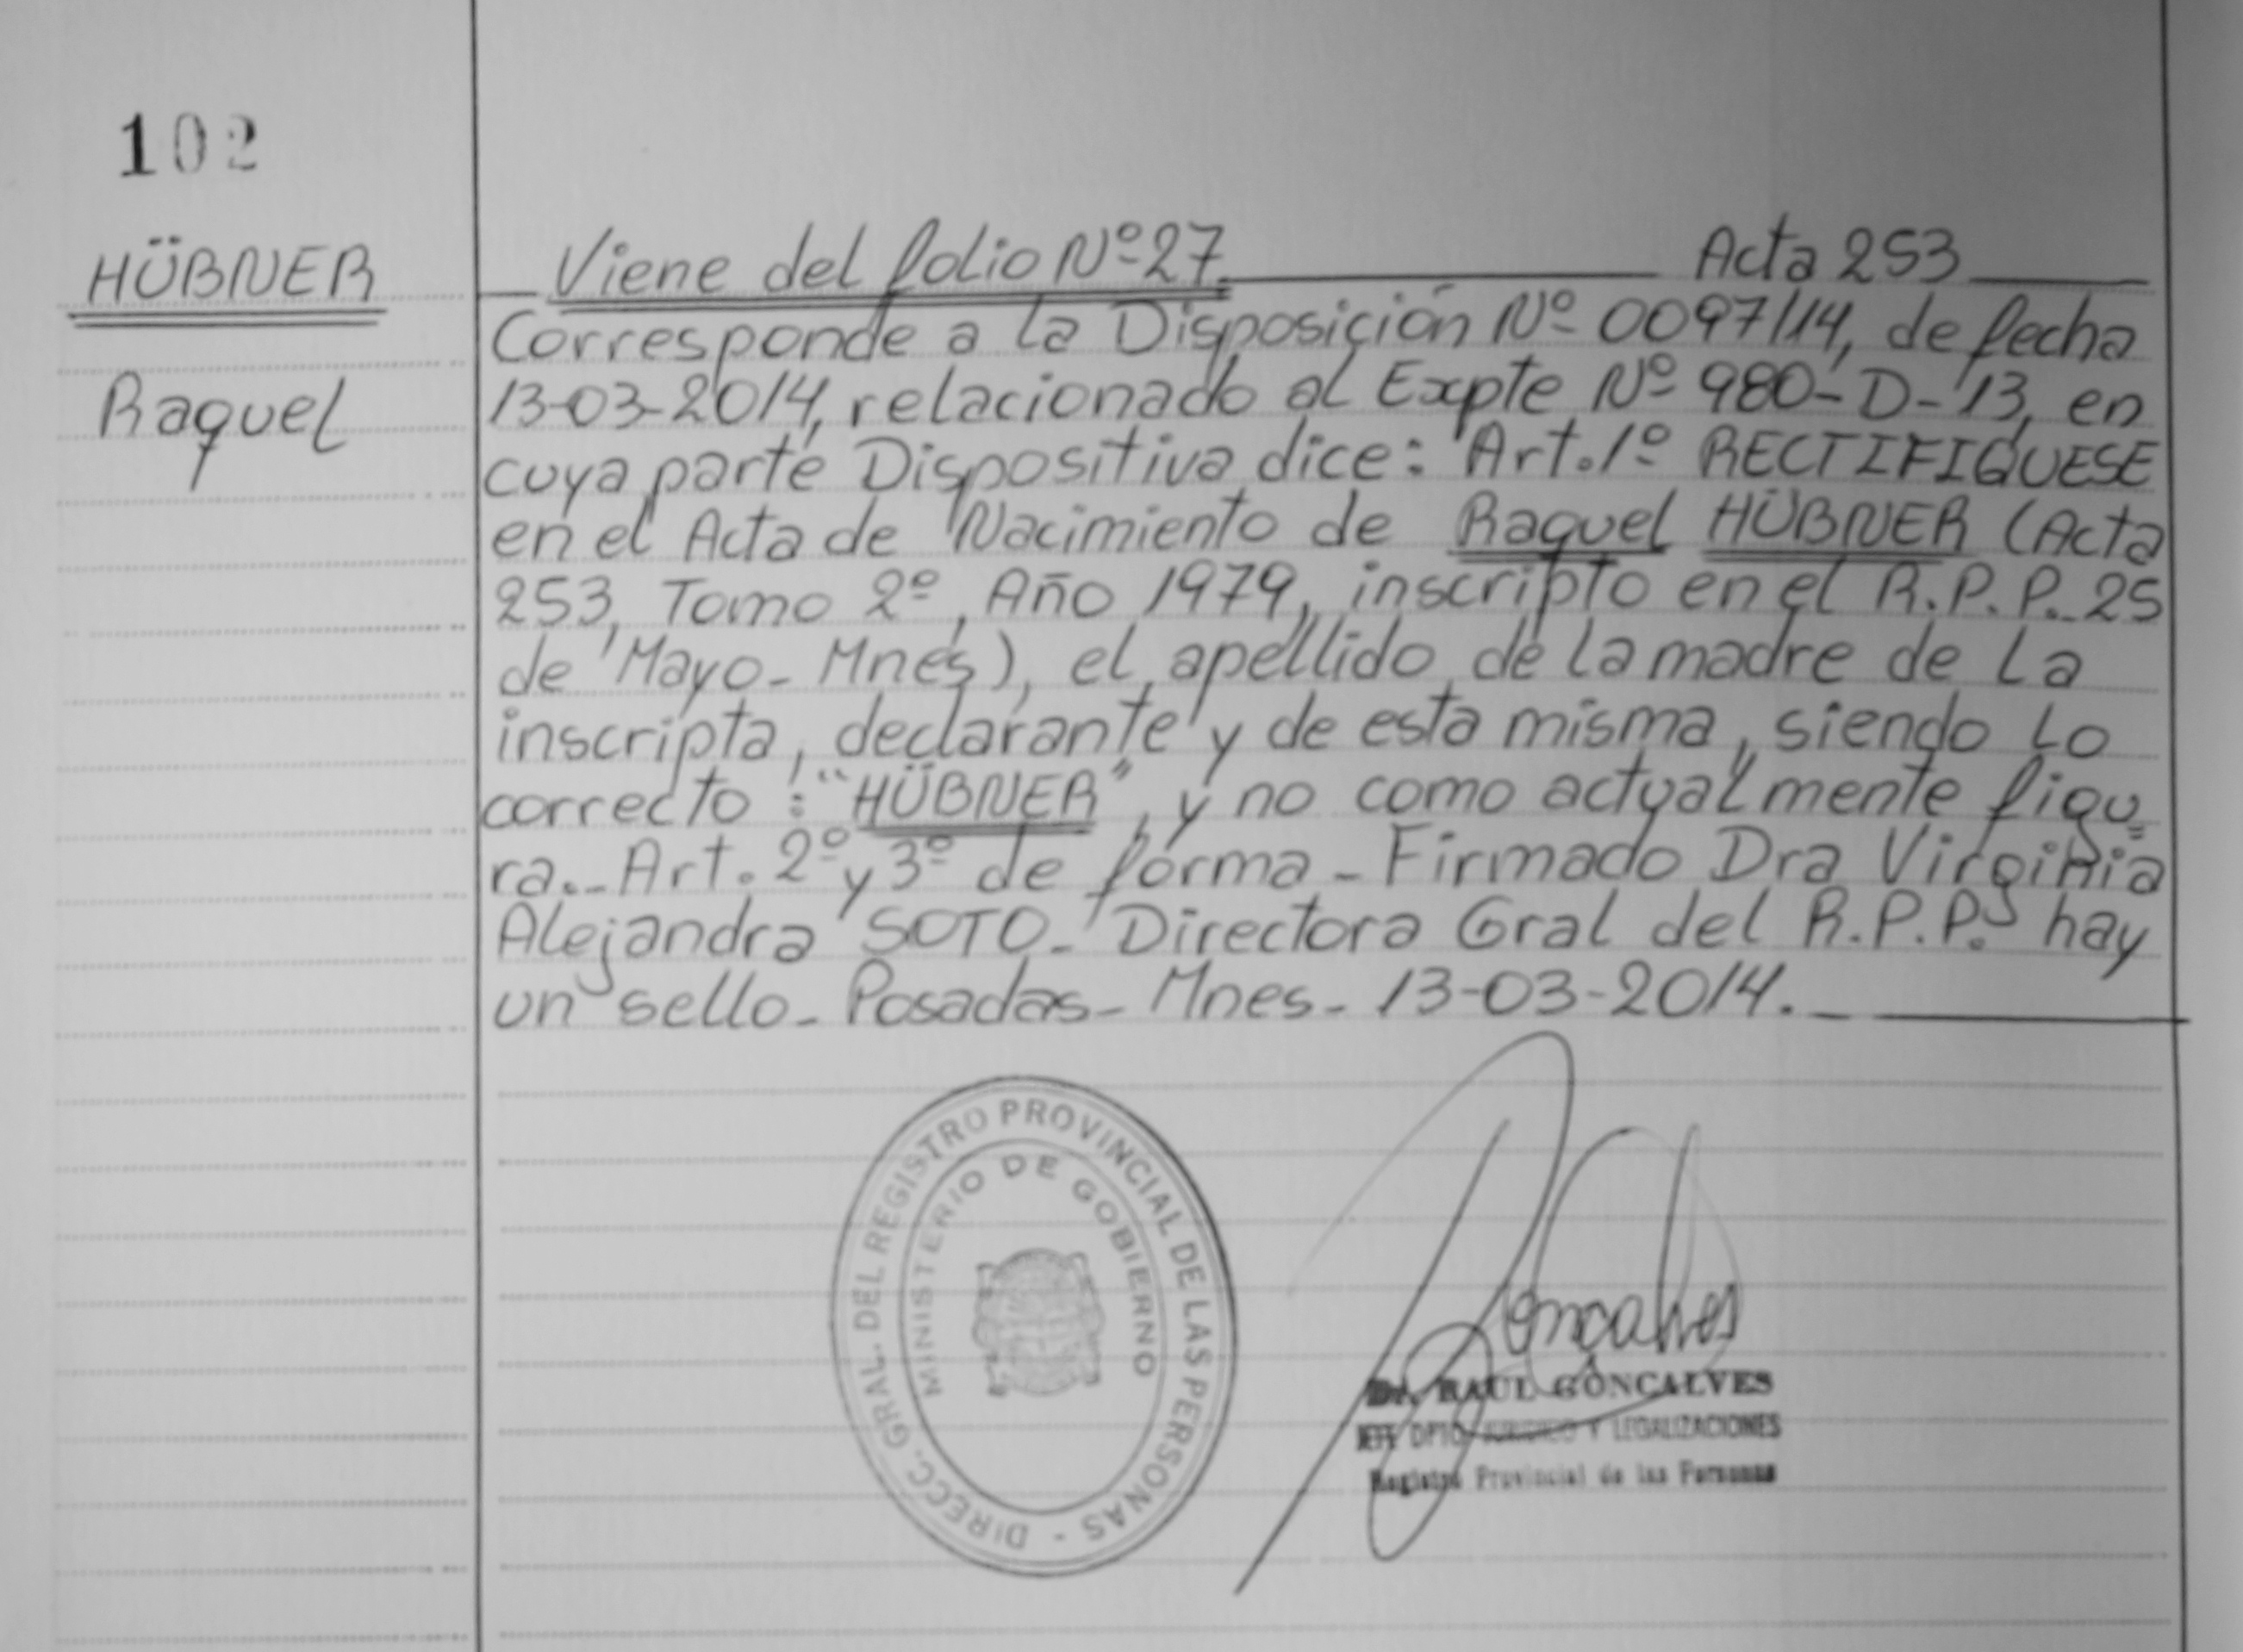 102
HÜBNER
Raquel
Viene del folio Nº 27. Acta 253
Corresponde a la Disposición Nº 0097/14, de fecha
13-03-2014, relacionado al Expte Nº 980-D-13, en
cuya parte Dispositiva dice: "Art. 1º RECTIFIQUESE
en el Acta de Nacimiento de Raquel HÜBNER (Acta
253, Tomo 2º, Año 1979, inscripto en el R.P.P. 25
de Mayo - Mnes), el apellido de la madre de la
inscripta, declarante y de esta misma, siendo lo
correcto: "HÜBNER", y no como actualmente figu=
ra._ Art. 2º y 3º de forma - Firmado Dra Virginia
Alejandra SOTO - Directora Gral del R.P.P. hay
un sello - Posadas - Mnes - 13-03-2014.
DIRECC. GRAL. DEL REGISTRO PROVINCIAL DE LAS PERSONAS -
MINISTERIO DE GOBIERNO
Goncalves
Dr. RAUL GONCALVES
JEFE DPTO. JURIDICO Y LEGALIZACIONES
Registro Provincial de las Personas